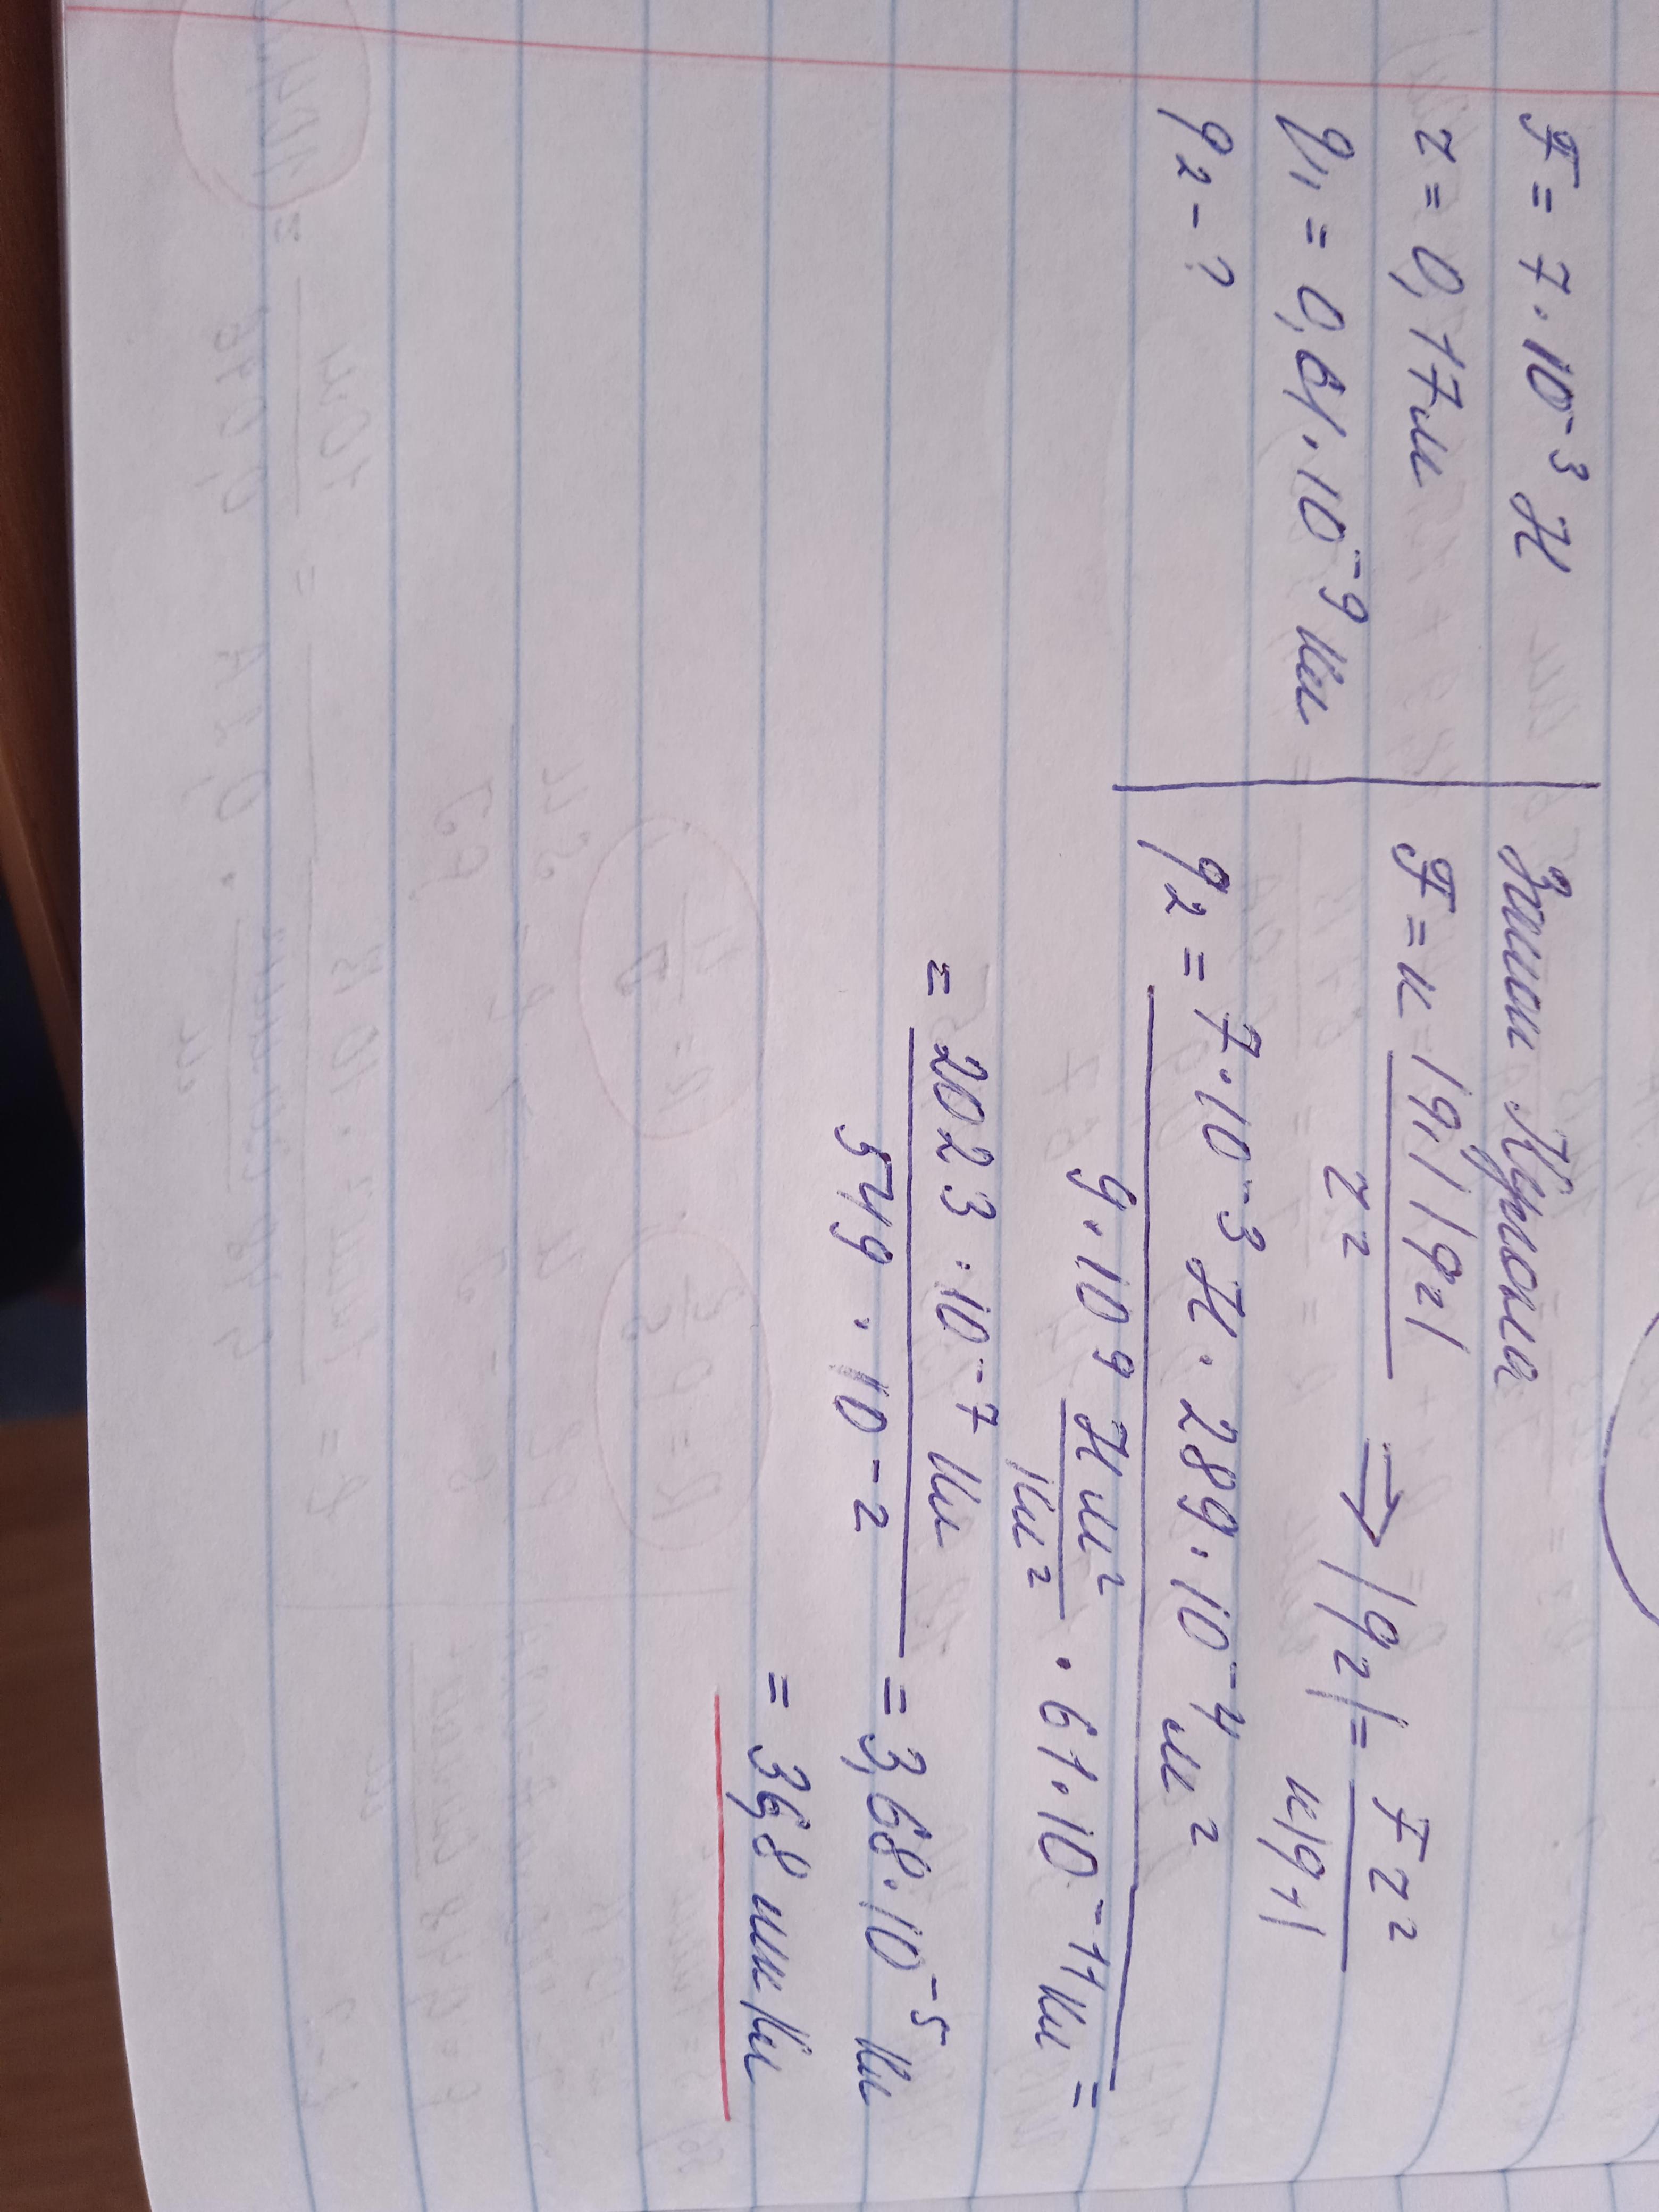 F = 7 · 10⁻³ Н
r = 0,17 м
q₁ = 0,61 · 10⁻⁹ Кл
q₂ - ?
Закон Кулона
F = к |q₁| |q₂| / r² ⇒ |q₂| = F r² / к|q₁|
q₂ = 7 · 10⁻³ Н · 289 · 10⁻⁴ м² / 9 · 10⁹ Н м² / Кл² · 61 · 10⁻¹¹ Кл =
= 2023 · 10⁻⁷ Кл / 549 · 10⁻² = 3,68 · 10⁻⁵ Кл
= 36,8 мкКл